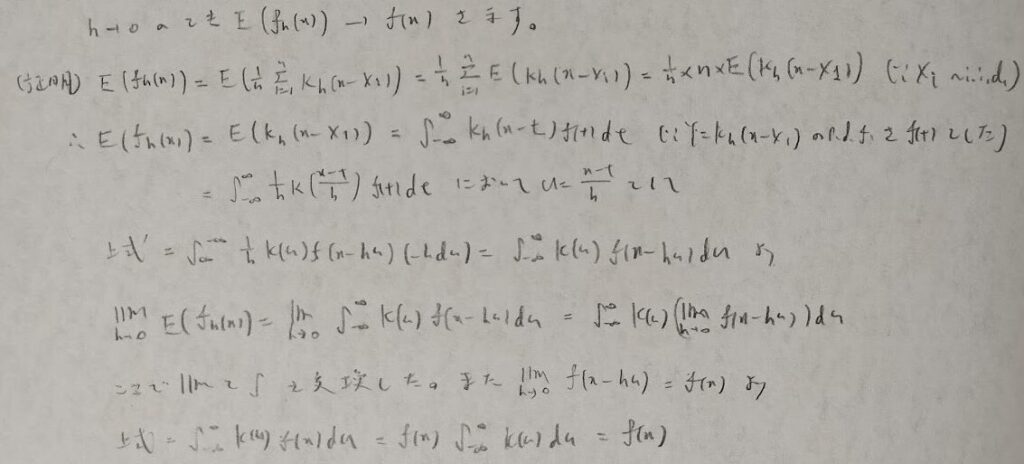 h→0 のとき E(fh(x)) → f(x) を示す。
(証明) E(fh(x)) = E(1/n Σ_{i=1}^{n} Kh(x-Xi)) = 1/n Σ_{i=1}^{n} E(Kh(x-Xi)) = 1/n × n × E(Kh(x-X1)) (∵ Xi ~ i.i.d.)
∴ E(fh(x)) = E(Kh(x-X1)) = ∫_{-∞}^{∞} Kh(x-t) f(t) dt (∵ Y=Kh(x-X1) の p.d.f. を f(t) とした)
= ∫_{-∞}^{∞} 1/h K((x-t)/h) f(t) dt において u = (x-t)/h として
上式' = ∫_{∞}^{-∞} 1/h K(u) f(x-hu) (-hdu) = ∫_{-∞}^{∞} K(u) f(x-hu) du より
lim_{h→0} E(fh(x)) = lim_{h→0} ∫_{-∞}^{∞} K(u) f(x-hu) du = ∫_{-∞}^{∞} K(u) (lim_{h→0} f(x-hu)) du
ここで lim と ∫ を交換した。また lim_{h→0} f(x-hu) = f(x) より
上式 = ∫_{-∞}^{∞} K(u) f(x) du = f(x) ∫_{-∞}^{∞} K(u) du = f(x)